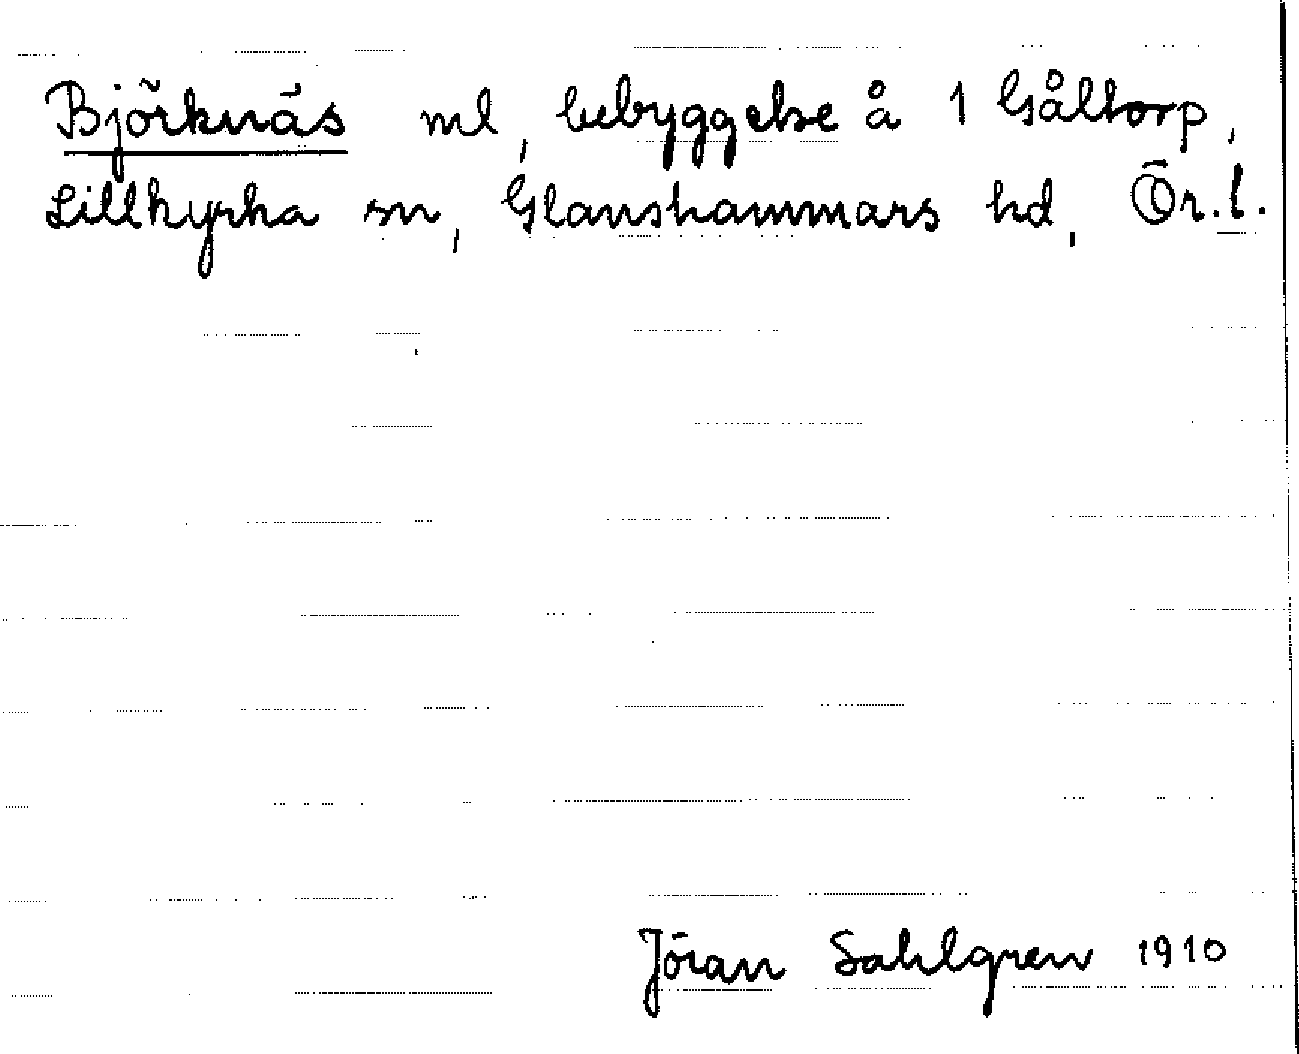 Björknäs ml, bebyggelse å 1 Gåltorp,
Lillkyrka sn, Glanshammars hd, Ör.l.
Jöran Sahlgren 1910